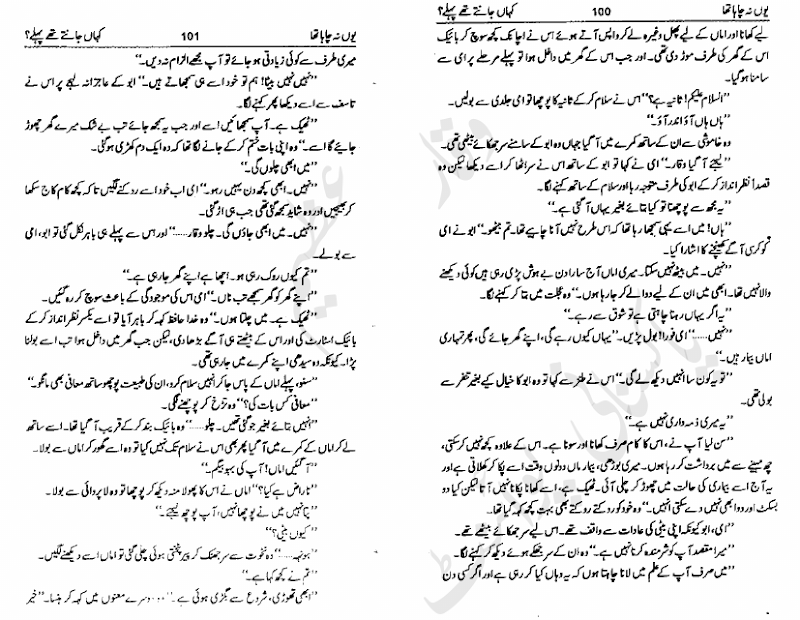 یوں نہ چاہا تھا 100 کہاں جانتے تھے پہلے؟
لیے کھانا اور اماں کے لیے پھل وغیرہ لے کر واپس آتے ہوئے اس نے اچانک کچھ سوچ کر بائیک
اس کے گھر کی طرف موڑ دی تھی۔ اور جب اس کے گھر میں داخل ہوا تو پہلے مرحلے پر ای سے
سامنا ہو گیا۔
”السلام علیکم! ثانیہ ہے؟“ اس نے سلام کر کے ثانیہ کا پوچھا تو امی جلدی سے بولیں۔
”ہاں ہاں آؤ اندر آؤ۔“
وہ خاموشی سے ان کے ساتھ کمرے میں آ گیا جہاں وہ ابو کے سامنے سر جھکائے بیٹھی تھی۔
”لیجئے آ گیا وقار۔“ امی نے کہا تو ابو کے ساتھ اس نے سر اٹھا کر اسے دیکھا لیکن وہ
قصداً نظر انداز کر کے ابو کی طرف متوجہ رہا اور سلام کے ساتھ کہنے لگا۔
”یہ مجھ سے پوچھنا تو کیا بتائے بغیر یہاں آ گئی ہے۔“
”ہاں! میں اسے یہی سمجھا رہا تھا کہ اس طرح نہیں آنا چاہیے تھا۔ تم بیٹھو۔“ ابو نے امی
کو کرسی آگے کھینچنے کا اشارا کیا۔
”نہیں۔ میں بیٹھ نہیں سکتا۔ میری اماں آج سارا دن بے ہوش پڑی رہی ہیں کوئی دیکھنے
والا نہیں تھا۔ ابھی میں ان کے لیے دوا لے کر جا رہا ہوں۔“ وہ عجلت میں بتا کر کہنے لگا۔
”یہ اگر یہاں رہنا چاہتی ہے تو شوق سے رہے۔“
”نہیں......“ امی فوراً بول پڑیں۔ ”یہاں کیوں رہے گی، اپنے گھر جائے گی، پھر تمہاری
اماں بیمار ہیں۔“
”تو یہ کون سا انہیں دیکھ لے گی۔“ اس نے طنز سے کہا تو وہ ابو کا خیال کیے بغیر تنفر سے
بولی تھی۔
”یہ میری ذمہ داری نہیں ہے۔“
”سن لیا آپ نے، اس کا کام صرف کھانا اور سونا ہے۔ اس کے علاوہ کچھ نہیں کر سکتی،
چھ مہینے سے میں برداشت کر رہا ہوں۔ میری بوڑھی، بیمار ماں دونوں وقت اسے پکا کر کھلاتی ہے اور
یہ آج اسے بیماری کی حالت میں چھوڑ کر چلی آئی۔ ٹھیک ہے، اسے کھانا پکانا نہیں آتا لیکن کیا دو
بسکٹ اور دوا بھی نہیں دے سکتی انہیں۔“ وہ خود کو روکتے روکتے بھی بہت کچھ کہہ گیا تھا۔
”امی، ابو کیونکہ اپنی بیٹی کی عادات سے واقف تھے۔ اس لیے سر جھکائے بیٹھے تھے۔
”میرا مقصد آپ کو شرمندہ کرنا نہیں ہے۔“ وہ ان کے سر جھکے ہوئے دیکھ کر کہنے لگا۔
”میں صرف آپ کے علم میں لانا چاہتا ہوں کہ یہ وہاں کیا کر رہی ہے اور اگر کسی دن
یوں نہ چاہا تھا 101 کہاں جانتے تھے پہلے؟
میری طرف سے کوئی زیادتی ہو جائے تو آپ مجھے الزام نہ دیں۔“
”نہیں نہیں بیٹا! ہم تو خود اسے ہی سمجھاتے ہیں۔“ ابو کے عاجزانہ لہجے پر اس نے
تاسف سے اسے دیکھا پھر کہنے لگا۔
”ٹھیک ہے۔ آپ سمجھائیں اسے اور جب یہ سمجھ جائے تب بے شک میرے گھر چھوڑ
جائیے گا اسے۔“ وہ اپنی بات ختم کر کے جانے لگا تھا کہ وہ ایک دم کھڑی ہو گئی۔
”میں ابھی چلوں گی۔“
”نہیں۔ ابھی کچھ دن یہیں رہو۔“ امی اب خود اسے روکنے لگیں تاکہ کچھ کام کاج سکھا
کر بھیجیں اور وہ شاید سمجھ گئی تھی جب ہی اڑ گئی۔
”نہیں۔ میں ابھی جاؤں گی۔ چلو وقار......“ اور اس سے پہلے ہی باہر نکل گئی تو ابو، امی
سے بولے۔
”تم کیوں روک رہی ہو۔ اچھا ہے اپنے گھر جا رہی ہے۔“
”اپنے گھر کو گھر سمجھے تب ناں۔“ امی اس کی موجودگی کے باعث سوچ کر رہ گئیں۔
”ٹھیک ہے۔ میں چلتا ہوں۔“ وہ خدا حافظ کہہ کر باہر آیا تو اسے یکسر نظر انداز کر کے
بائیک اسٹارٹ کی اور اس کے بیٹھتے ہی آگے بڑھا دی، لیکن جب گھر میں داخل ہوا تب اسے بولنا
پڑا۔ کیونکہ وہ سیدھی اپنے کمرے میں جا رہی تھی۔
”سنو، پہلے اماں کے پاس جا کر انہیں سلام کرو، ان کی طبیعت پوچھو ساتھ معافی بھی مانگو۔“
”معافی کس بات کی؟“ وہ تڑخ کر پوچھنے لگی۔
”انہیں بتائے بغیر جو گئی تھیں۔ چلو۔“ وہ بائیک بند کر کے قریب آ گیا تھا۔ اسے ساتھ
لے کر اماں کے کمرے میں آ گیا پھر بھی اس نے سلام تک نہیں کیا تو وہ اسے گھور کر اماں سے بولا۔
”آ گئیں اماں! آپ کی بہو بیگم۔“
”ناراض ہے کیا؟“ اماں نے اس کا پھولا منہ دیکھ کر پوچھا تو وہ لاپروائی سے بولا۔
”پتا نہیں میں نے پوچھا نہیں، آپ پوچھ لیجئے۔“
”کیوں بیٹی؟“
”ہونہہ......“ وہ نخوت سے سر جھٹک کر پیر پٹختی ہوئی چلی گئی تو اماں اسے دیکھنے لگیں۔
”تم نے کچھ کہا ہے۔“
”ابھی تھوڑی، شروع سے بگڑی ہوئی ہے۔“ وہ دوسرے معنوں میں کہہ کر ہنسا۔ ”خیر